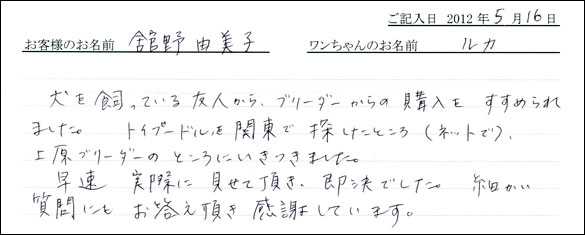 ご記入日 2012年5月16日
お客様のお名前 舘野由美子 ワンちゃんのお名前 ルカ
犬を飼っている友人から、ブリーダーからの購入をすすめられ
ました。 トイプードルを関東で探したところ(ネットで)、
上原ブリーダーのところにいきつきました。
早速 実際に見せて頂き、即決でした。 細かい
質問にも お答え頂き 感謝しています。